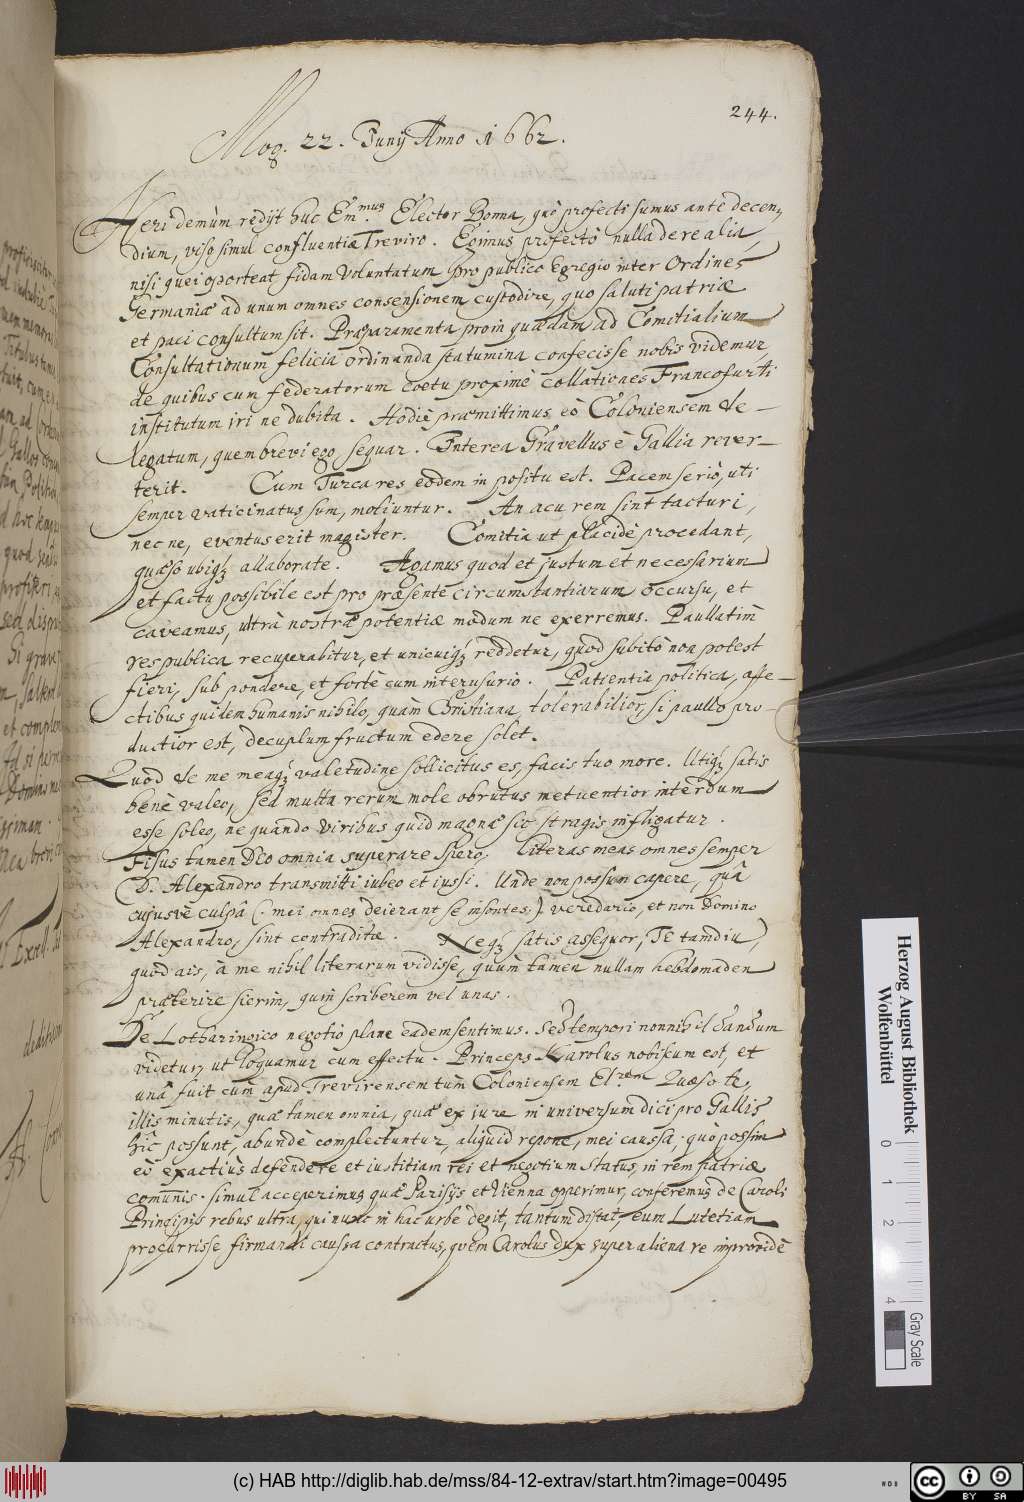 244.
Mog. 22. Junij Anno 1662.
Heri demùm redijt huc Em.mus Elector Bonna, quò profecti sumus antè decen„
dium, viso simul confluentiæ Treviro. Egimus profectò nulla de re alia,
nisi quei oporteat fidam voluntatum pro publico Egregio inter Ordines
Germaniæ ad unum omnes consensionem custodire, quo saluti patriæ
et paci consultum sit. Præparamenta proin quædam ad Comitialium
Consultationum felicia ordinanda statumina confecisse nobis videmur,
de quibus cum federatorum coetu proximè collationes Francofurti
institutum iri ne dubita. Hodiè præmittimus eò Coloniensem de-
legatum, quem brevi ego sequar. Interea Gravellus è Gallia rever-
terit. Cum Turca res eòdem in positu est. Pacem seriò, uti
semper vaticinatus sum, moliuntur. An acu rem sint tacturi,
nec ne, eventus erit magister. Comitia ut placidè procedant,
quæso ubiq; allaborate. Agamus quod et justum et necessarium
et factu possibile est pro præsente circumstantiarum occursu, et
caveamus, ultrà nostræ potentiæ modum ne exerremus. Paullatim
respublica recuperabitur, et unicuiq; reddetur, quod subitò non potest
fieri, sub pondere, et fortè cum interusurio. Patientia politica, affe-
ctibus quidem humanis nihilo, quam Christiana, tolerabilior, si paullo pro-
ductior est, decuplum fructum edere solet.
Quod de me meaq; valetudine sollicitus es, facis tuo more. Utiq; satis
benè valeo, sed multa rerum mole obrutus metuentior interdum
esse soleo, ne quando viribus quid magnæ sic stragis infligatur.
Fisus tamen Deo omnia superare spero, literas meas omnes semper
D. Alexandro transmitti iubeo et iussi. Unde non possum capere, quâ
cujusve culpâ (: mei omnes deierant se insontes:) veredario, et non Domino
Alexandro, sint contraditæ. Neq; satis assequor, Te tamdiu,
quod ais, à me nihil literarum vidisse, quum tamen nullam hebdomaden
præterire sierim, quin scriberem vel unas.
De Lotharingico negotio plane eadem sentimus. Sed tempori nonnihil dandum
videtur, ut loquamur cum effectu. Princeps Karolus nobiscum est, et
unâ fuit cum apud Trevirensem tùm Coloniensem El.rem Quæso te,
illis minutis, quæ tamen omnia, quæ ex jure in universum dici pro Gallis
hîc possunt, abundè complectuntur, aliquid repone, mei caussa, quò possim
eò exactiùs defendere et iustitiam rei et negotium status, in rem patriæ
comunis. simul acceperimus quæ Parisijs et Vienna opperimur, conferemus de Caroli
Principis rebus ultra, qui nunc in hac urbe degit, tantum distat, eum Lutetiam
procurrisse firmandi caussa contractus, quem Carolus dux super aliena re improvidè
Herzog August Bibliothek
Wolfenbüttel
0 1 2 4
Gray Scale
(c) HAB http://diglib.hab.de/mss/84-12-extrav/start.htm?image=00495
cc BY SA